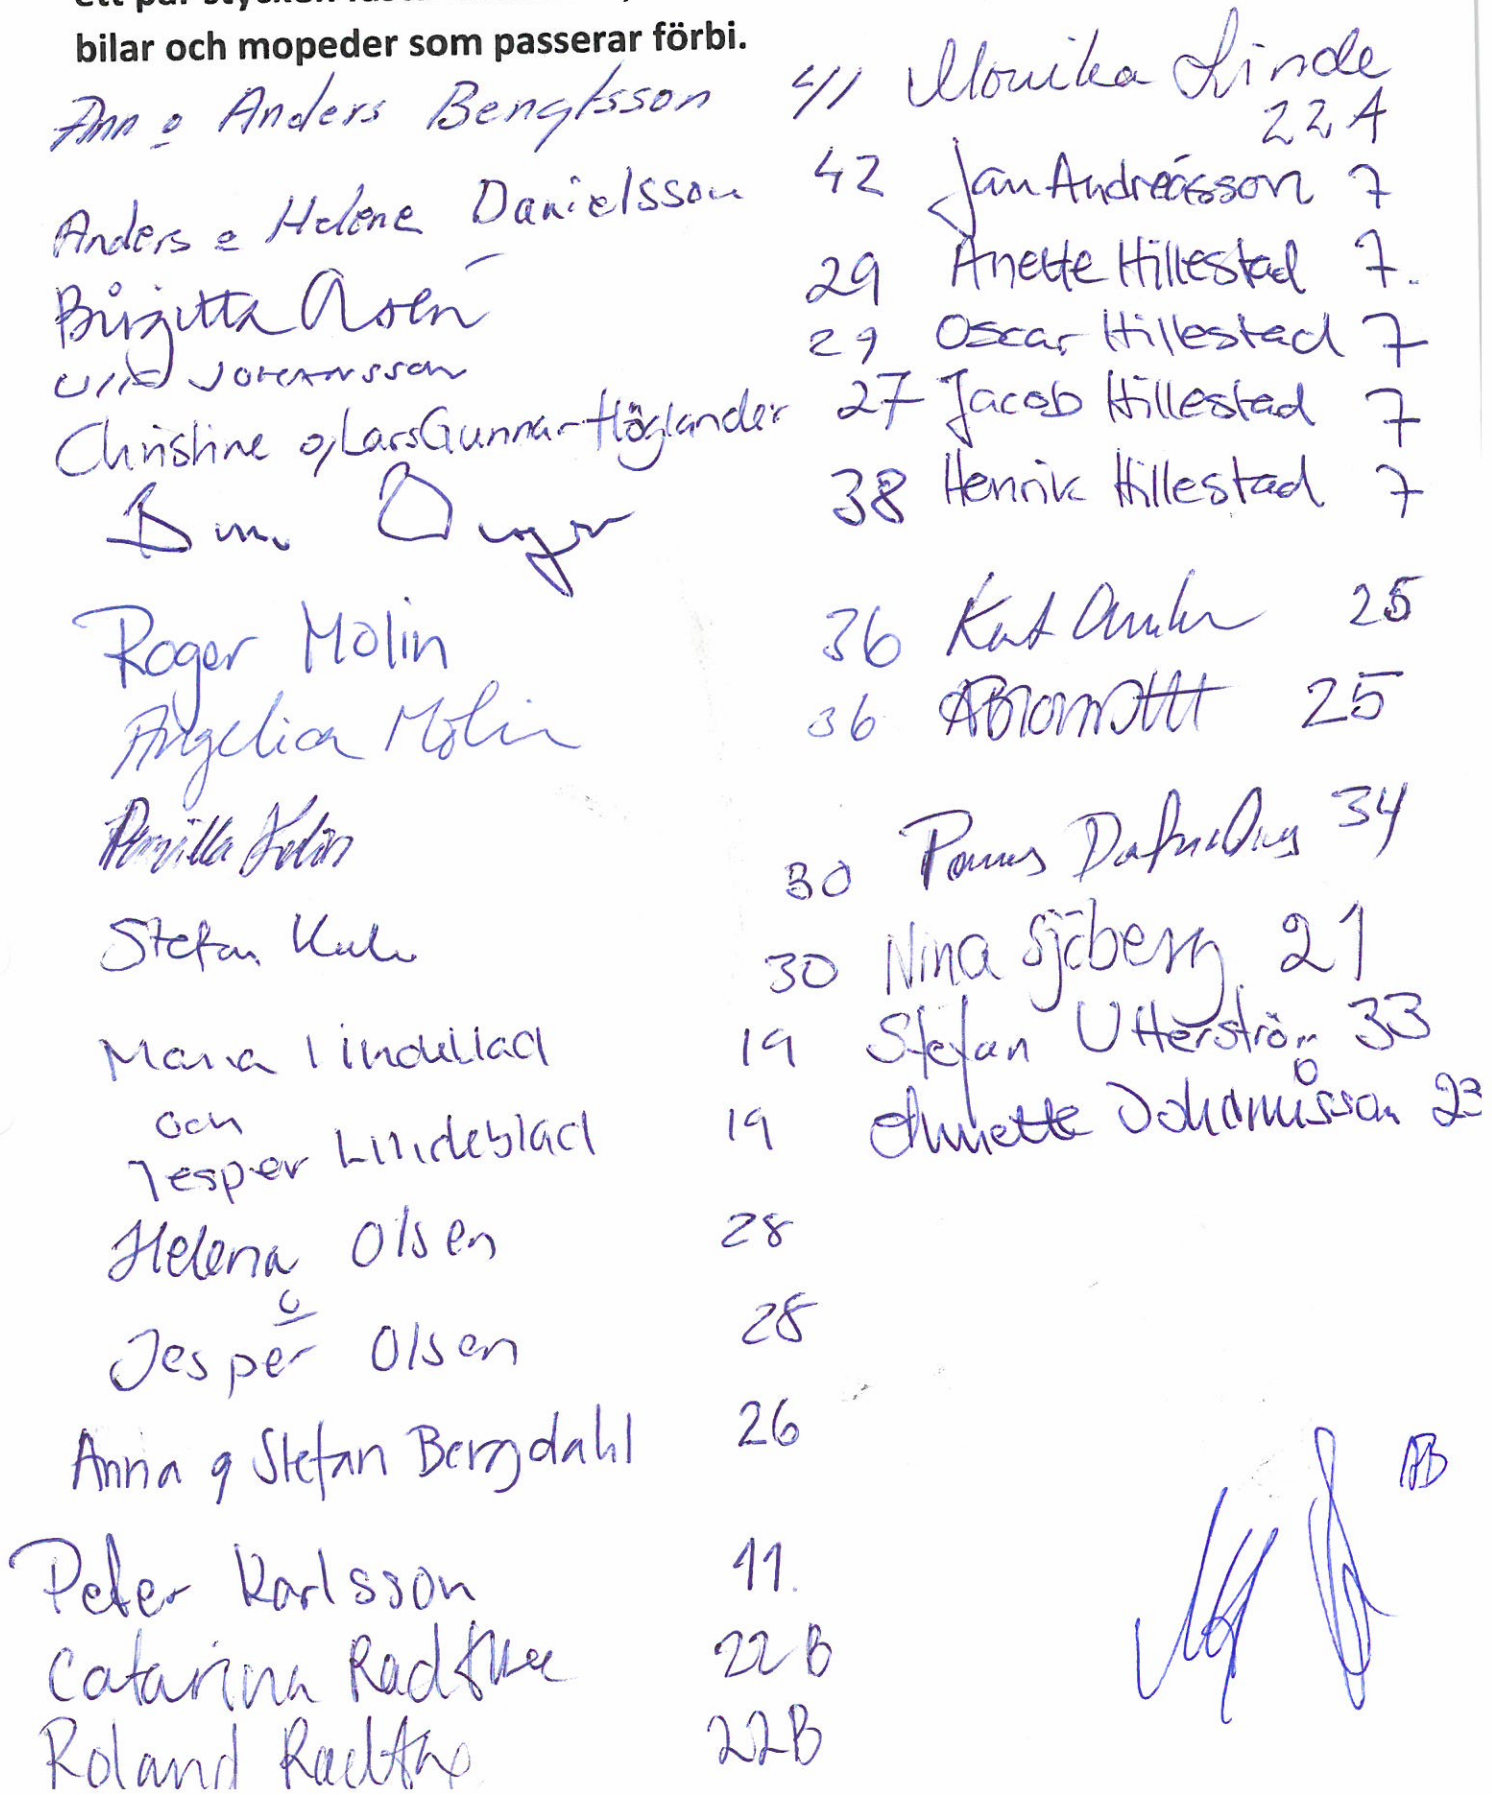 ett par stycken
bilar och mopeder som passerar förbi.
Ann o Anders Bengtsson 41
Anders o Helene Danielsson 42
Birgitta Åsén 29
Ulla Johansson 29
Christine o LarsGunnar Höglander 27
38
Roger Molin 36
Angelica Molin 36
Pernilla 30
Stefan 30
Maria Lindeblad 19
och
Jesper Lindeblad 19
Helena Olsen 28
o
Jesper Olsen 28
Anna o Stefan Bergdahl 26
Peter Karlsson 11.
Catarina Radtke 22B
Roland Radtke 22B
Monika Linde
22A
Jan Andreásson 7
Anette Hillestad 7.
Oscar Hillestad 7
Jacob Hillestad 7
Henrik Hillestad 7
25
25
34
Nina Sjöberg 21
Stefan Utterström 33
o
Annette Johannisson 23
AB